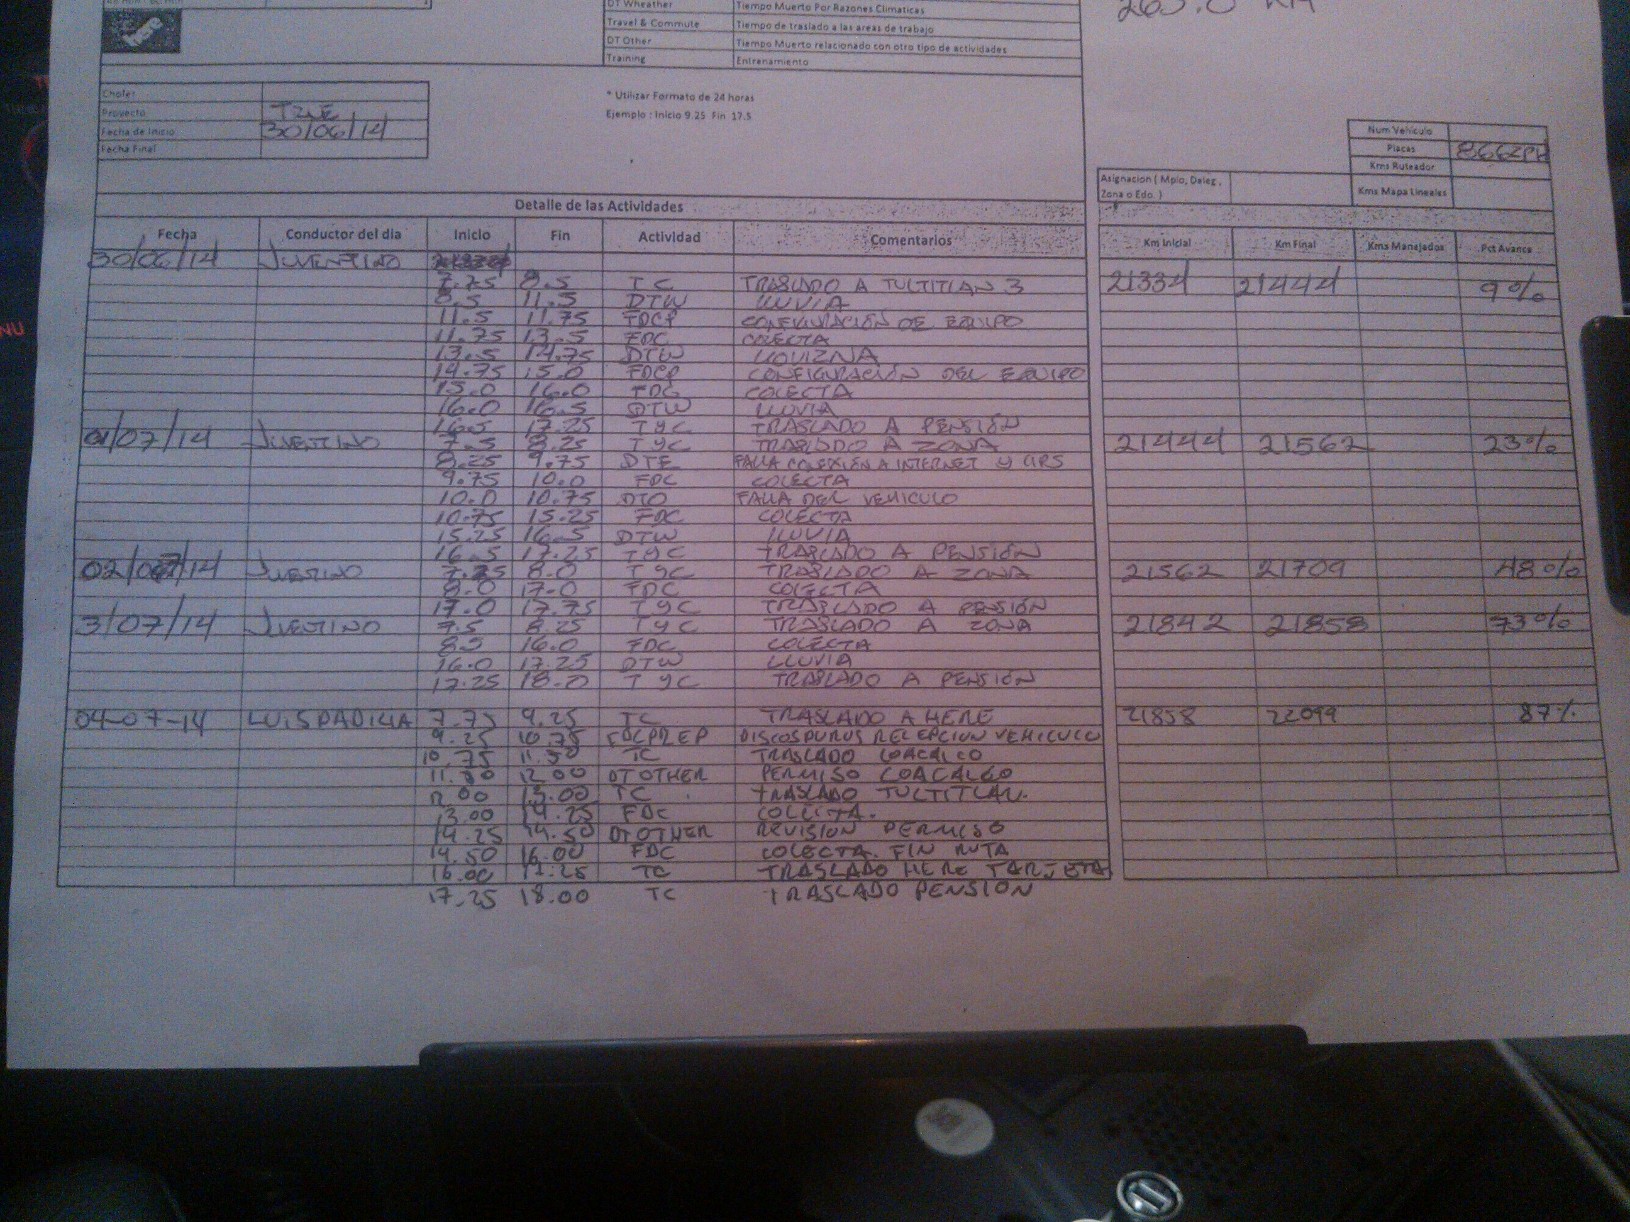 DT Wheather Tiempo Muerto Por Razones Climaticas
Travel & Commute Tiempo de traslado a las areas de trabajo
DT Other Tiempo Muerto relacionado con otro tipo de actividades
Training Entrenamiento
here
Chofer
Proyecto
Fecha de Inicio 30/06/14
Fecha Final
* Utilizar Formato de 24 horas
Ejemplo : Inicio 9.25 Fin 17.5
Num Vehiculo
Placas
Kms Ruteador
Asignacion ( Mpio, Deleg ,
Zona o Edo )
Kms Mapa Lineales
Detalle de las Actividades
Fecha Conductor del dia Inicio Fin Actividad Comentarios Km Inicial Km Final Kms Manejados Pct Avance
30/06/14 JUVENTINO
7.75 8.5 TC TRASLADO A TULTITLAN 3 21334 21444 9%
8.5 11.5 DTW LLUVIA
11.5 11.75 FDCP DE EQUIPO
11.75 13.5 FDC COLECTA
13.5 14.75 DTW LLOVIZNA
14.75 15.0 FDCP CONFIGURACIÓN DEL EQUIPO
15.0 16.0 FDC COLECTA
16.0 16.5 DTW LLUVIA
16.5 17.25 TYC TRASLADO A PENSIÓN
01/07/14 JUVENTINO 7.5 8.25 TYC TRASLADO A ZONA 21444 21562 23%
8.25 9.75 DTE FALLA CONEXIÓN A INTERNET Y GPS
9.75 10.0 FDC COLECTA
10.0 10.75 DTO FALLA DEL VEHICULO
10.75 15.25 FDC COLECTA
15.25 16.5 DTW LLUVIA
16.5 17.25 TYC TRASLADO A PENSIÓN
02/07/14 7.25 8.0 TYC TRASLADO A ZONA 21562 21709 48%
8.0 17.0 FDC COLECTA
17.0 17.75 TYC TRASLADO A PENSIÓN
3/07/14 JUVENTINO 7.5 8.25 TYC TRASLADO A ZONA 21842 21858 73%
16.0 FDC COLECTA
16.0 17.25 DTW LLUVIA
17.25 18.0 TYC TRASLADO A PENSIÓN
04-07-14 LUIS PADILLA 7.75 9.25 TC TRASLADO A HERE 21858 22099 87%
9.25 10.75 FDCPREP RECEPCION VEHICULO
10.75 11.50 TC TRASLADO COACALCO
11.50 12.00 DT OTHER PERMISO COACALCO
12.00 13.00 TC TRASLADO TULTITLAN.
13.00 14.25 FDC COLECTA.
14.25 14.50 DT OTHER REVISION PERMISO
14.50 16.00 FDC COLECTA. FIN RUTA
16.00 17.25 TC TRASLADO HERE TARJETA
17.25 18.00 TC TRASLADO PENSION